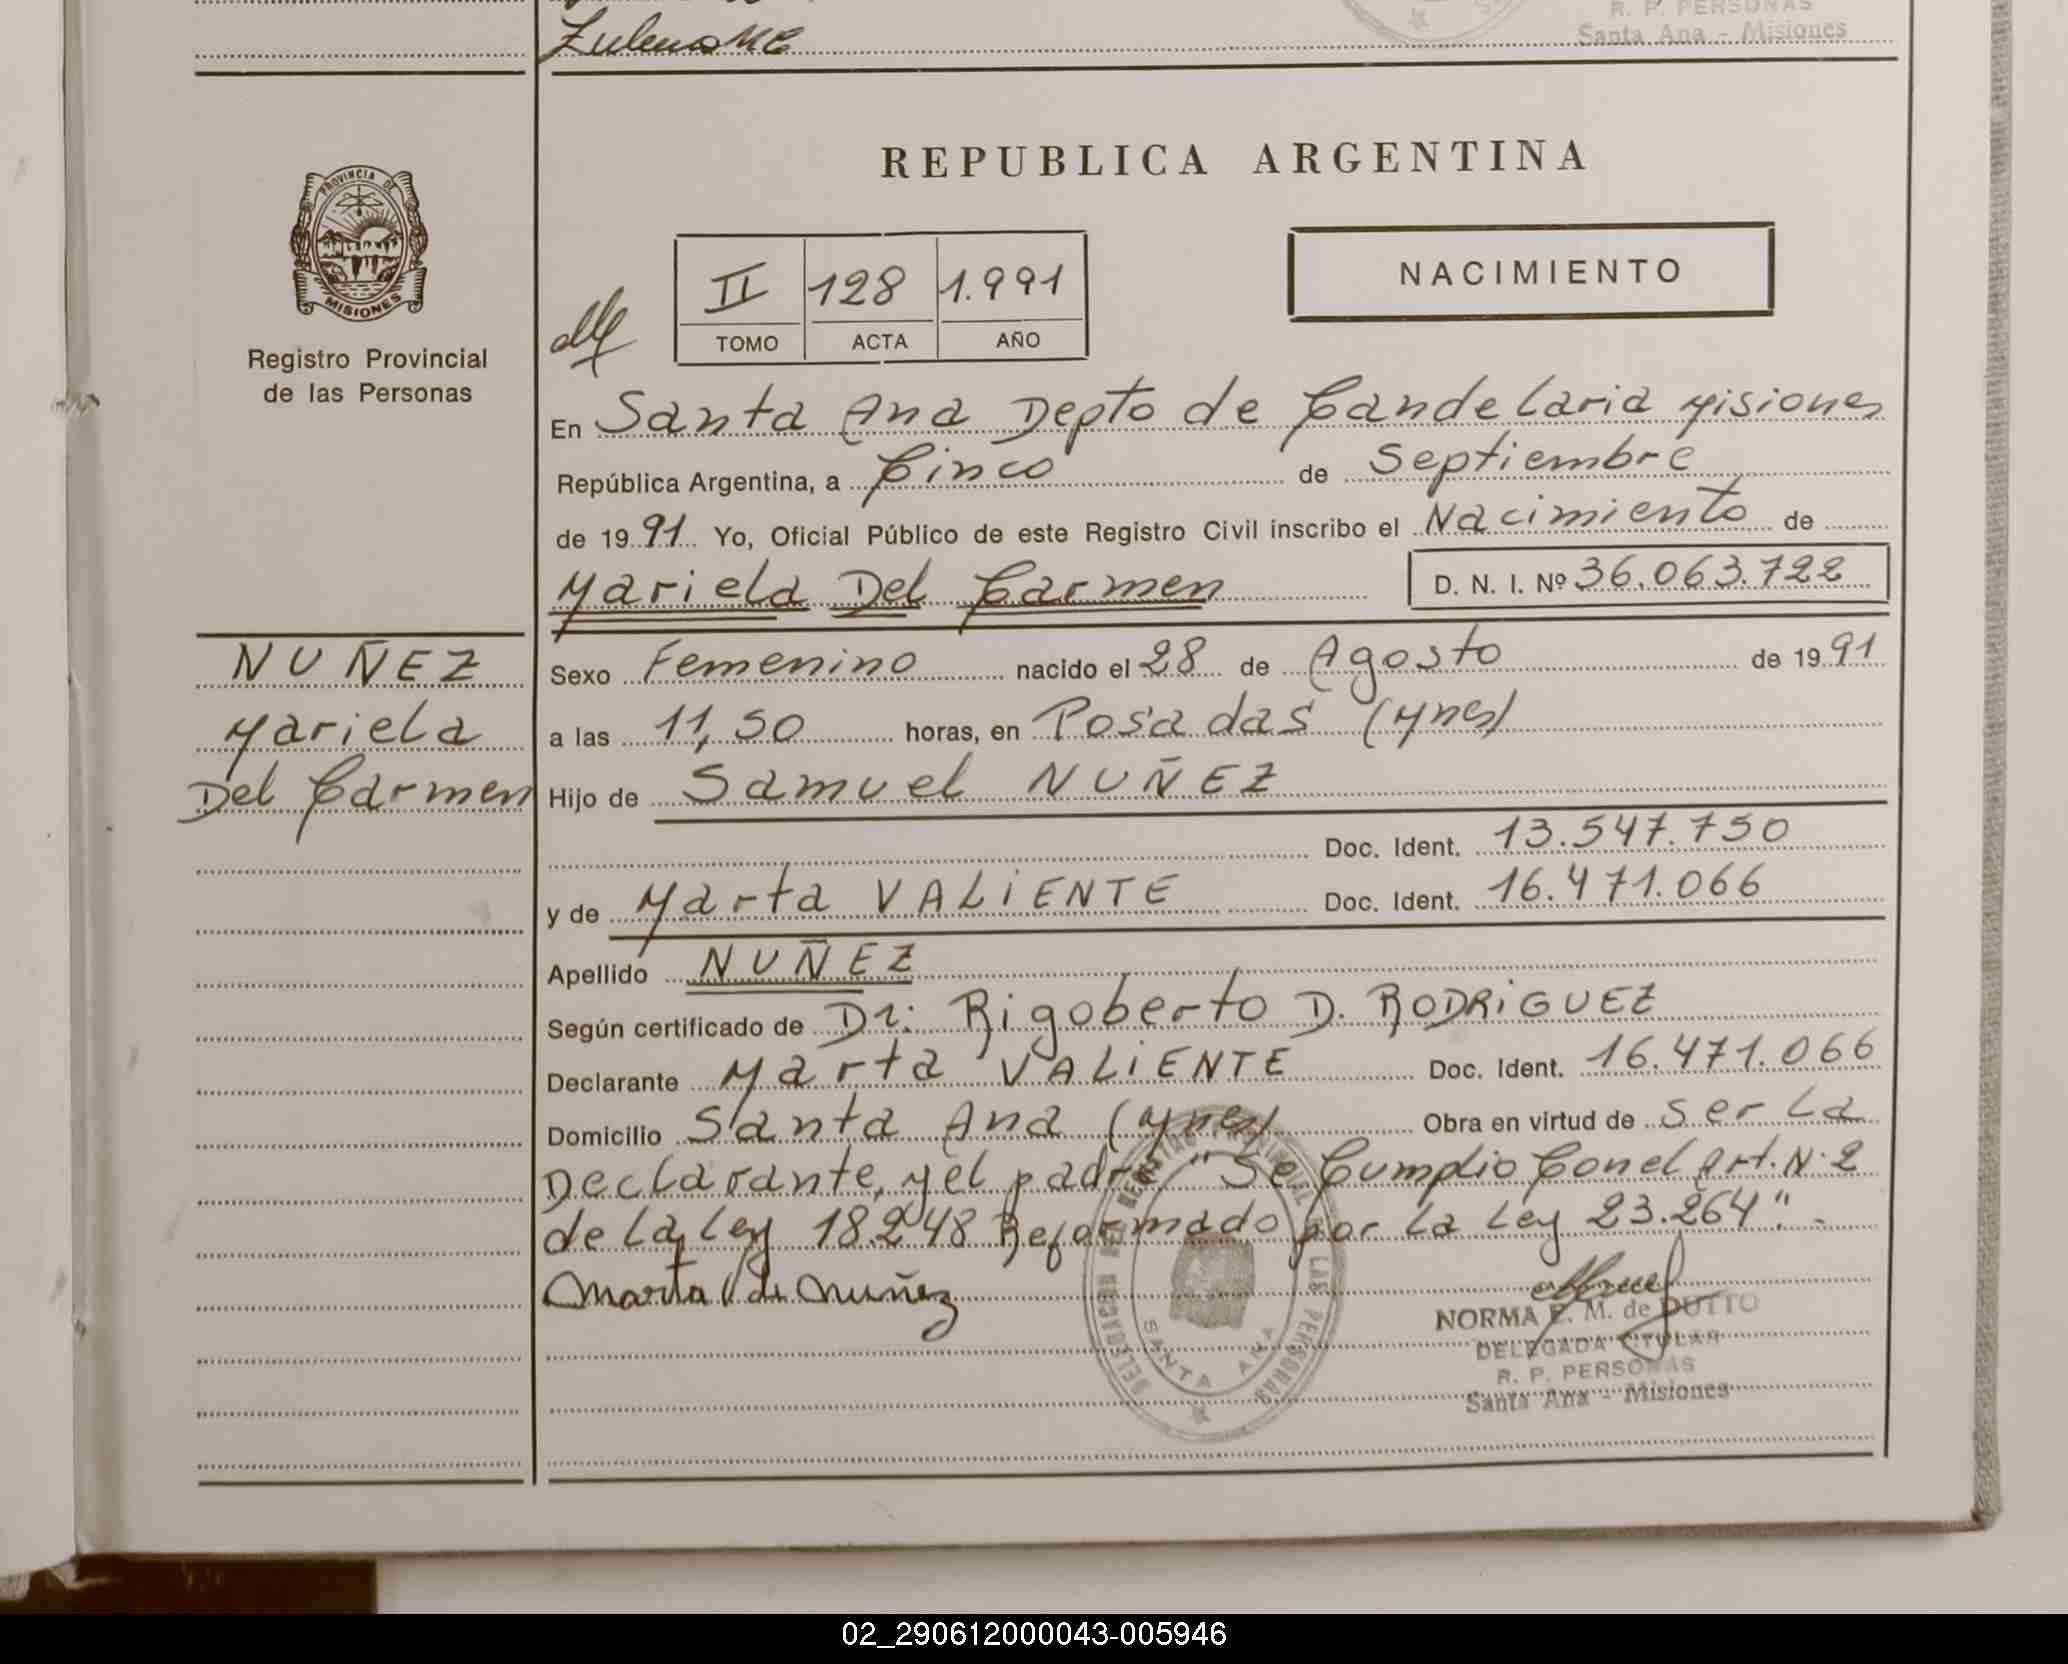 R. P. PERSONAS
Santa Ana - Misiones
PROVINCIA DE
MISIONES
Registro Provincial
de las Personas
REPUBLICA ARGENTINA
II 128 1.991
TOMO ACTA AÑO
NACIMIENTO
En Santa Ana Depto de Candelaria Misiones
República Argentina, a Cinco de Septiembre
de 1991 Yo, Oficial Público de este Registro Civil inscribo el Nacimiento de
Mariela Del Carmen D. N. I. Nº 36.063.722
NUÑEZ
Mariela
Del Carmen
Sexo Femenino nacido el 28 de Agosto de 1991
a las 11,50 horas, en Posadas (Mnes)
Hijo de Samuel NUÑEZ
Doc. Ident. 13.547.750
y de Marta VALIENTE Doc. Ident. 16.471.066
Apellido NUÑEZ
Según certificado de Dr: Rigoberto D. RODRIGUEZ
Declarante Marta VALIENTE Doc. Ident. 16.471.066
Domicilio Santa Ana (Mnes) Obra en virtud de ser la
Declarante, y el padre "Se Cumplio Con el Art. N: 2
de la Ley 18.248 Reformado por la Ley 23.264".-
Marta V de Nuñez
NORMA E. M. de DUTTO
DELEGADA TITULAR
R. P. PERSONAS
Santa Ana - Misiones
SANTA ANA
02_290612000043-005946